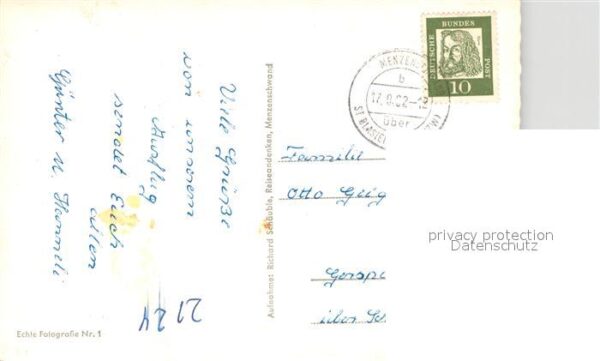 Viele Grüße
von unserem
Ausflug
sendet Euch
allen
Günter u. Hanneli
2124
Echte Fotografie Nr. 1
Aufnahme: Richard Schäuble, Reiseandenken, Menzenschwand
DEUTSCHE BUNDES POST
10
MENZENSC
b
17.8.62-1
über
ST BLASIE
Familie
Otto Geig
privacy protection
Datenschutz
über